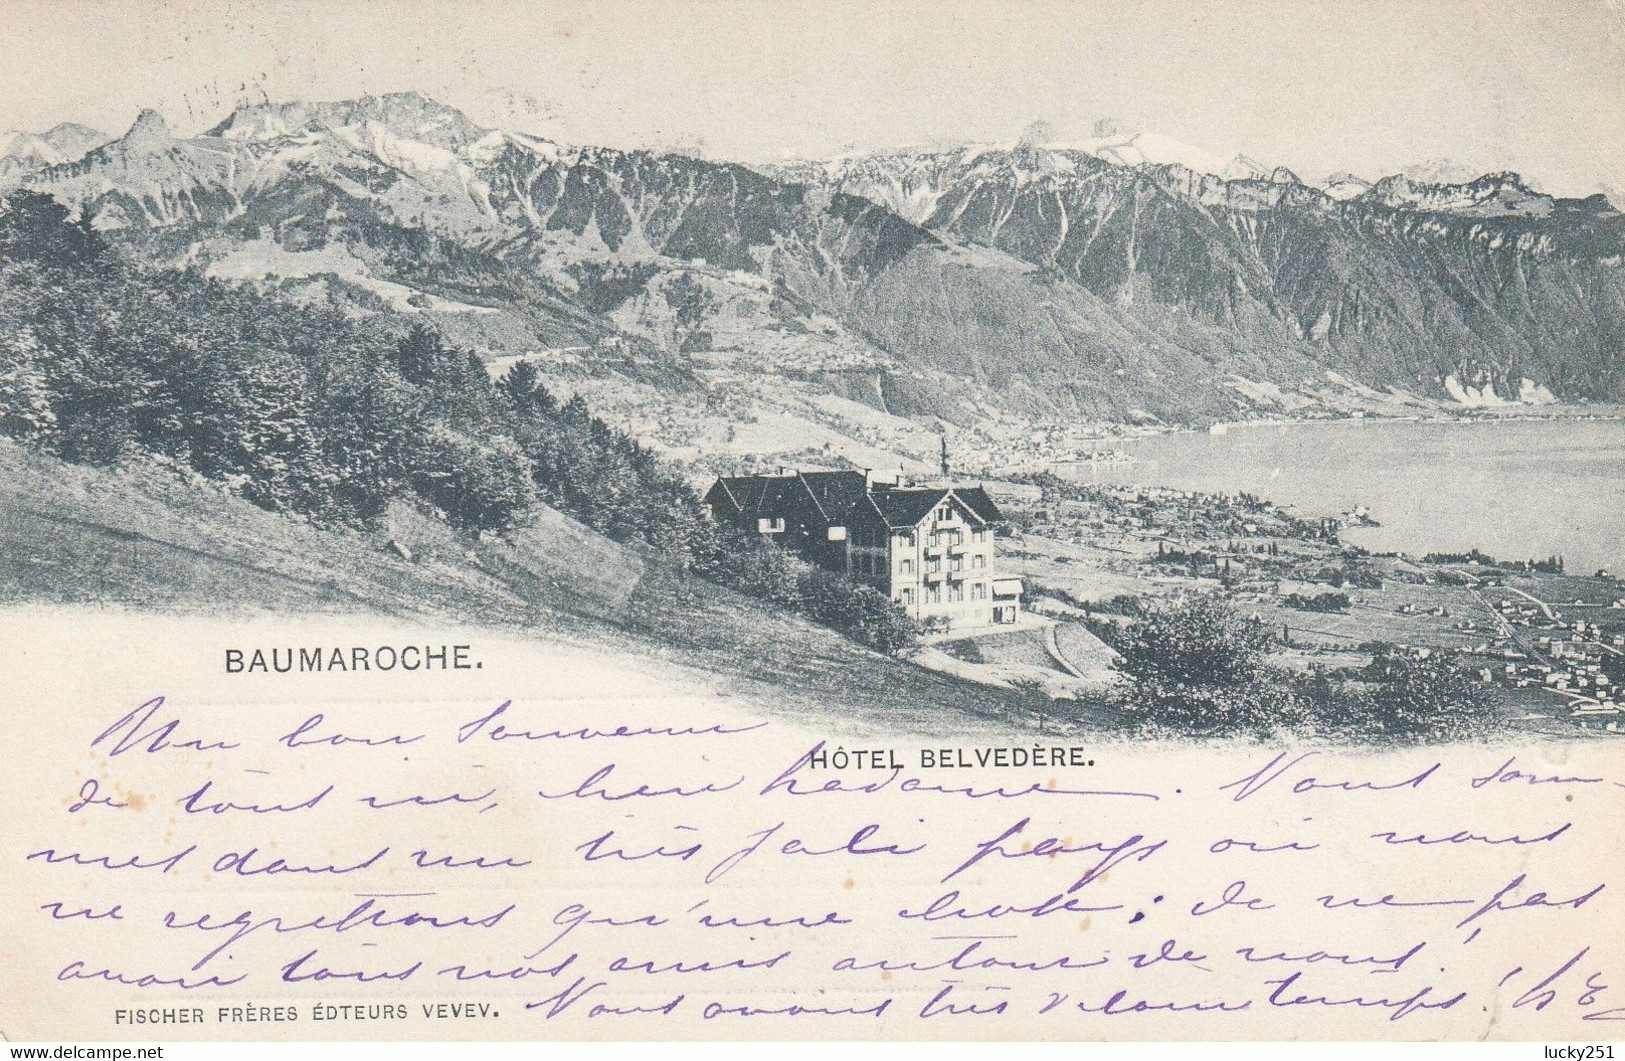 BAUMAROCHE.
HÔTEL BELVEDÈRE.
Un bon Souvenir
de tous ici, chère Madame. Nous som-
mes dans un très joli pays où nous
ne regrettons qu'une chose: de ne pas
avoir tous nos amis autour de nous!
FISCHER FRÈRES ÉDTEURS VEVEV.
Nous avons très vilain temps!
lucky251